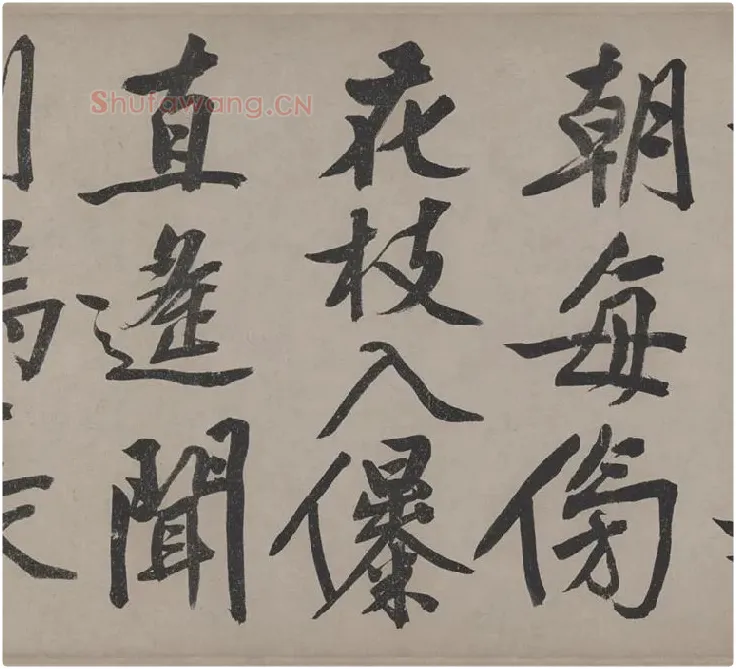 朝每傍
花枝入儤
直遙聞
Shufawang.CN